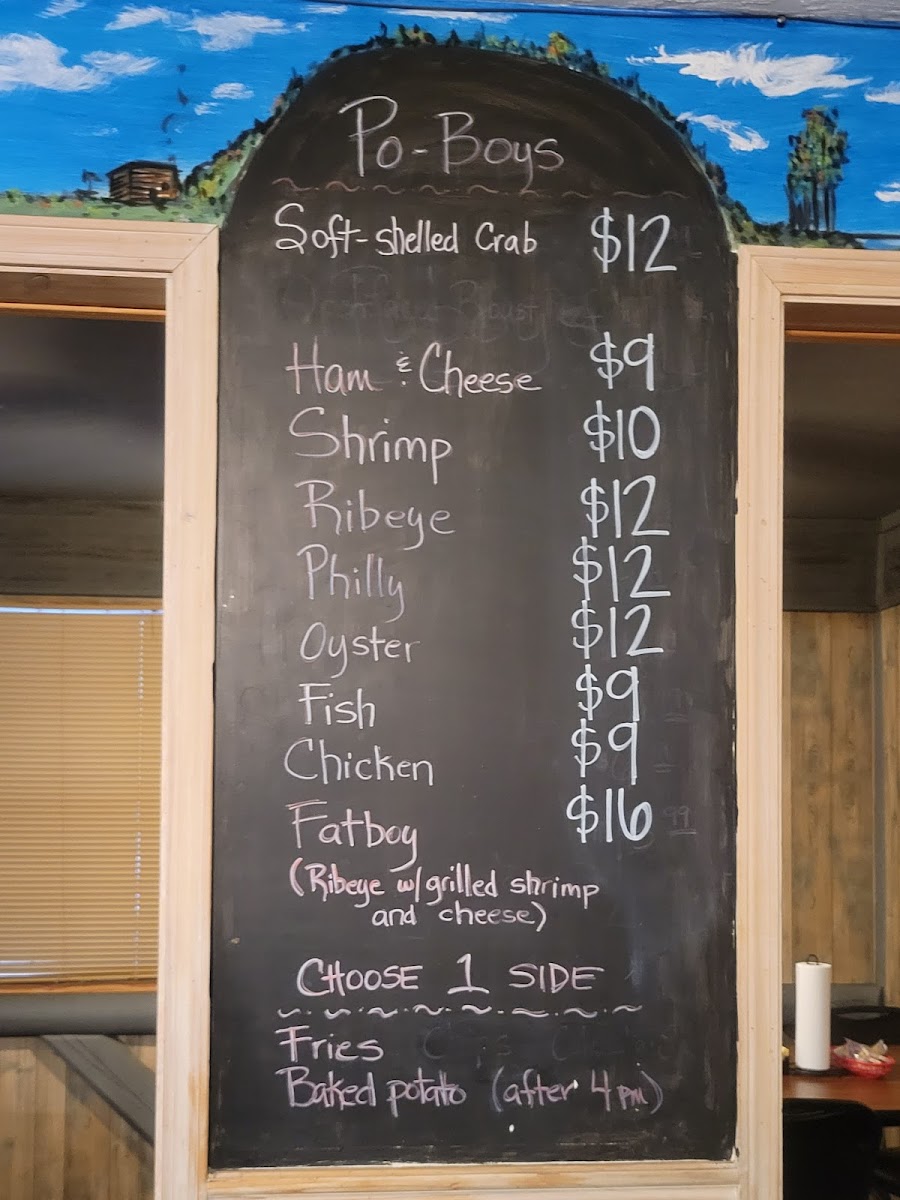 Po-Boys
Soft-shelled Crab $12
Ham & Cheese $9
Shrimp $10
Ribeye $12
Philly $12
Oyster $12
Fish $9
Chicken $9
Fatboy $16
(Ribeye w/grilled shrimp
and cheese)
CHOOSE 1 SIDE
Fries
Baked potato (after 4 PM)